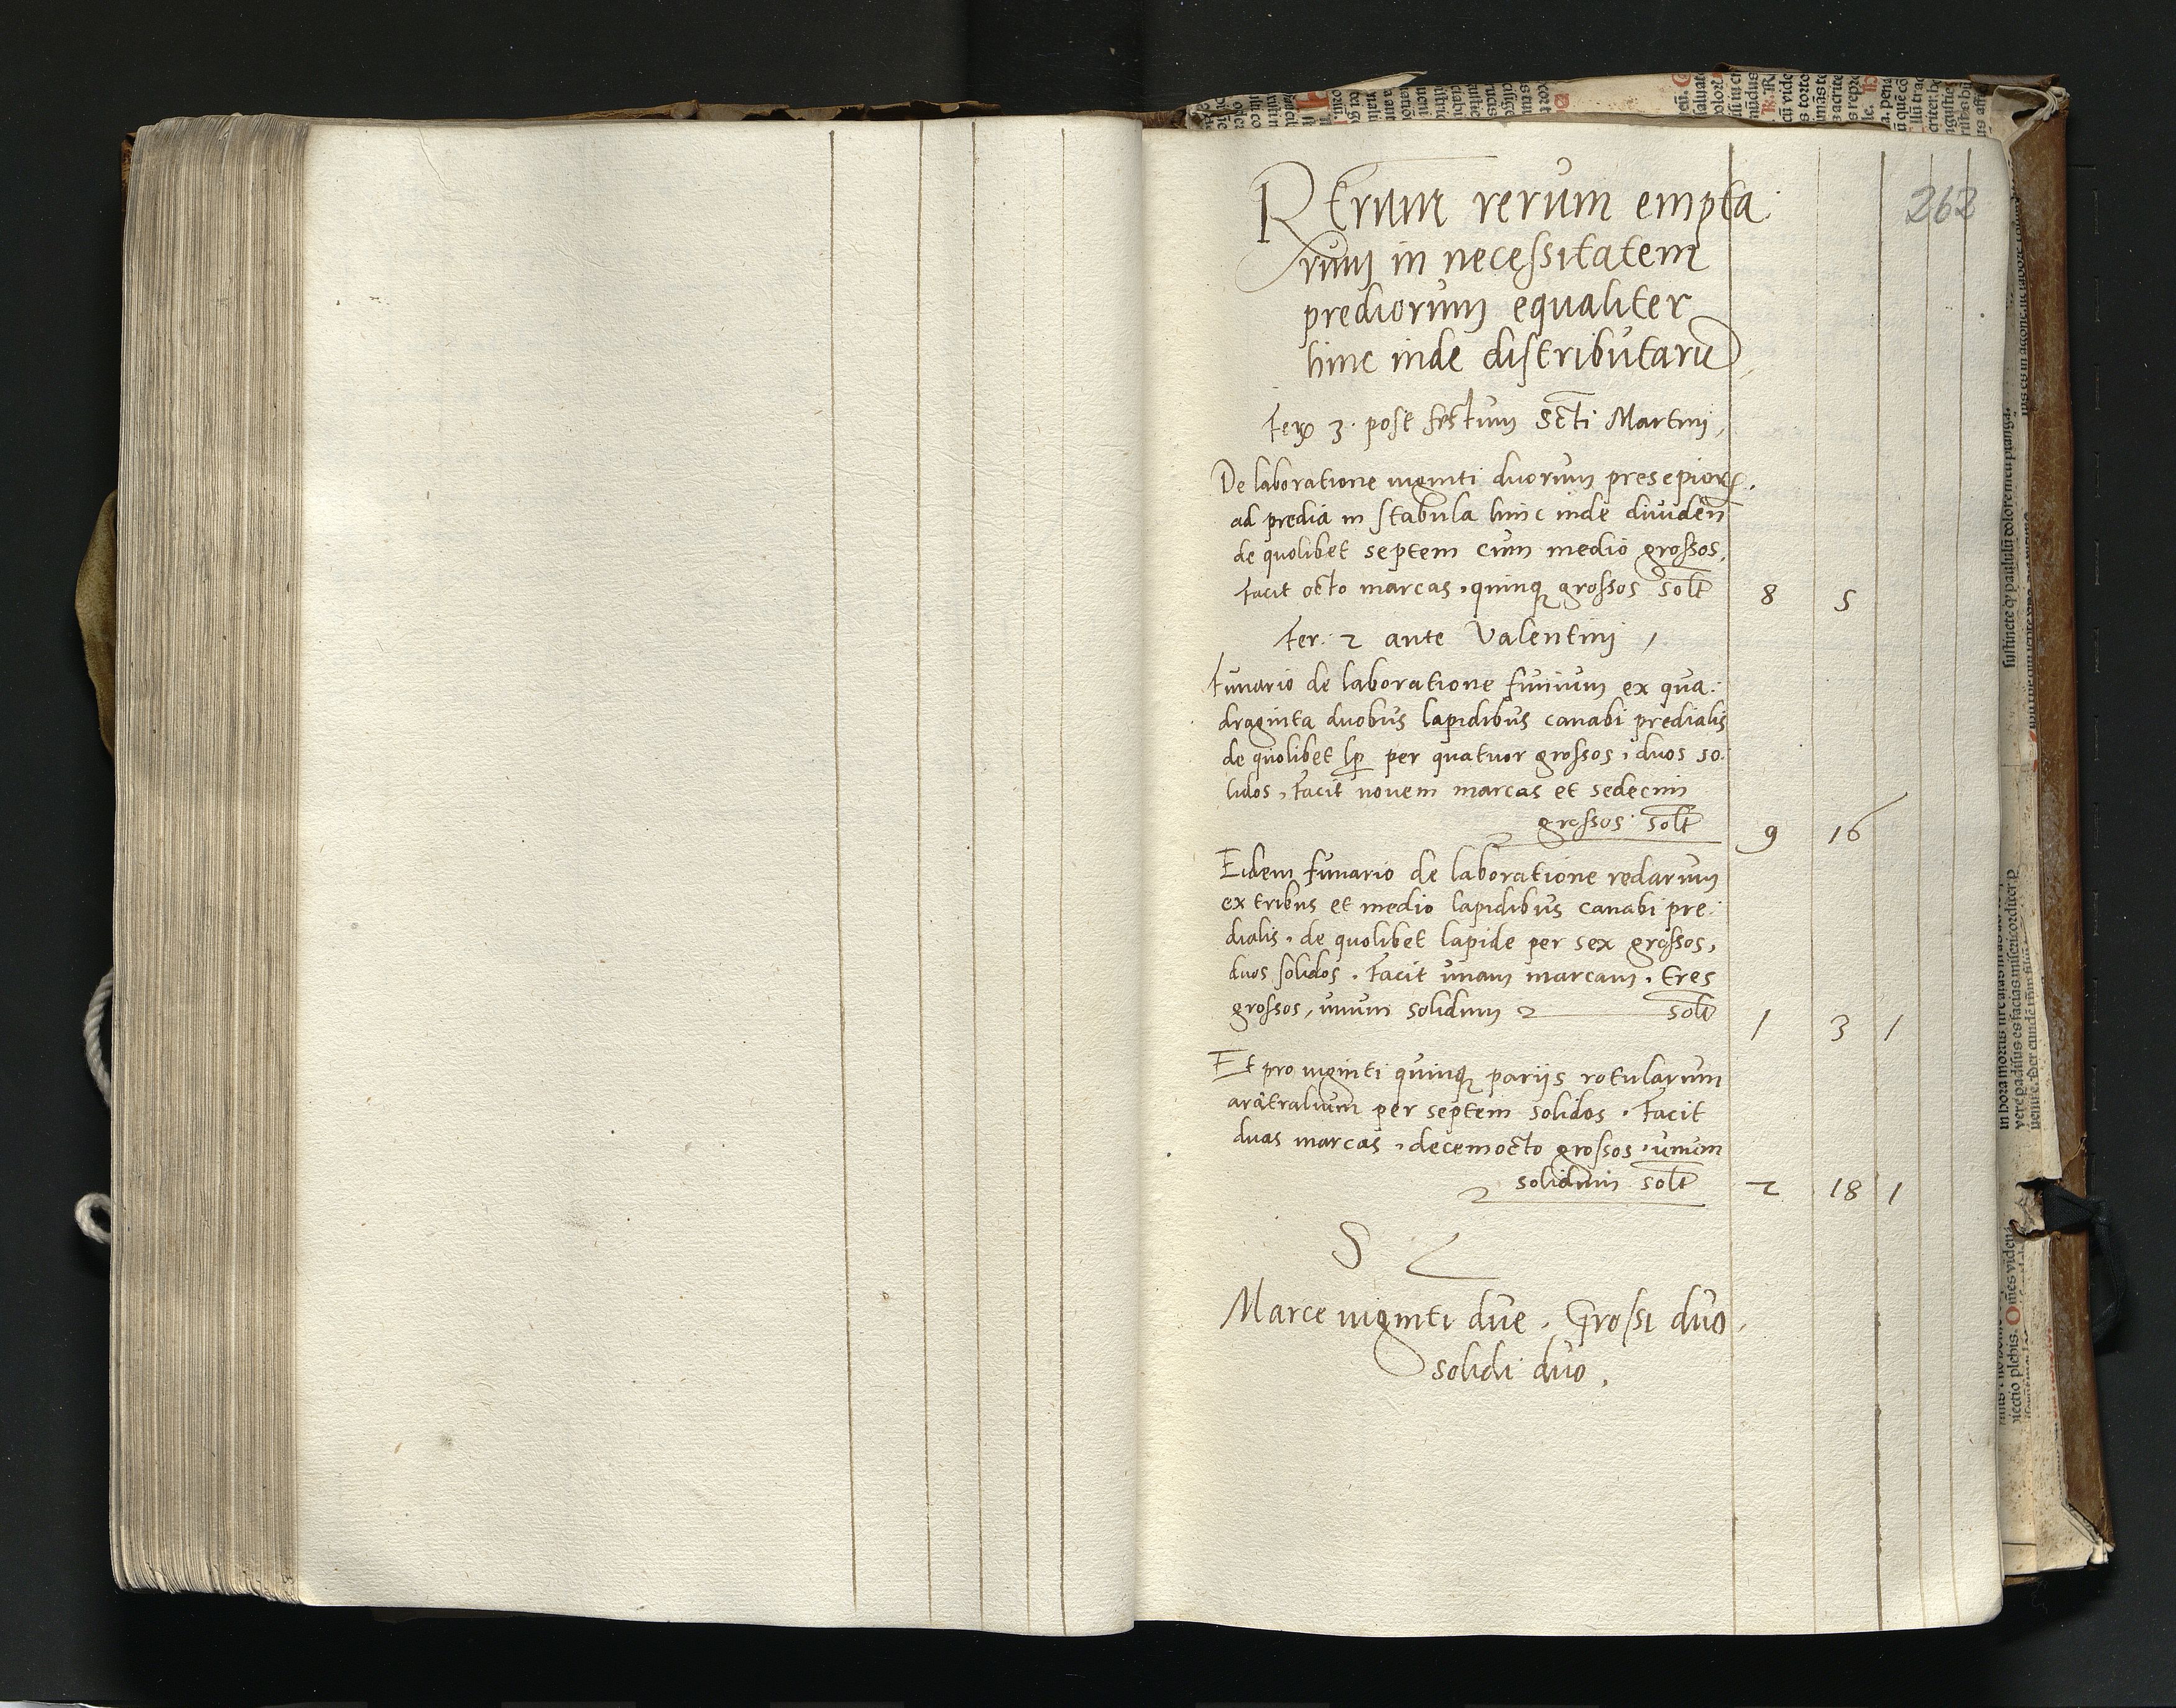 262
REruum rerum empta
rum in necessitatem
prediorum equaliter
hinc inde distributarū
Fer 3. post festum Scti Martini,
De laboratione viginti duorum presepior.
ad predia in stabula hinc inde dividen̄
de quolibet septem cum medio grossos,
Facit octo marcas, quinq grossos solt 8 5
Fer: 2 ante Valentini,
Funario de laboratione funium ex qua:
draginta duobus lapidibus canabi predialis
de quolibet lp per quatuor grossos, duos so:
lidos, Facit novem marcas et sedecim
grossos: solt 9 16
Eidem funario de laboratione redarum
ex tribus et medio lapidibus canabi pre:
dialis, de quolibet lapide per sex grossos,
duos solidos. Facit unam marcam, tres
grossos, unum solidum solt 1 3 1
Et pro viginti quinq pariis rotularum
aratralium per septem solidos. Facit
duas marcas, decemocto grossos, unum
solidum solt 2 18 1
S
Marce viginti due, Grossi duo,
solidi duo,